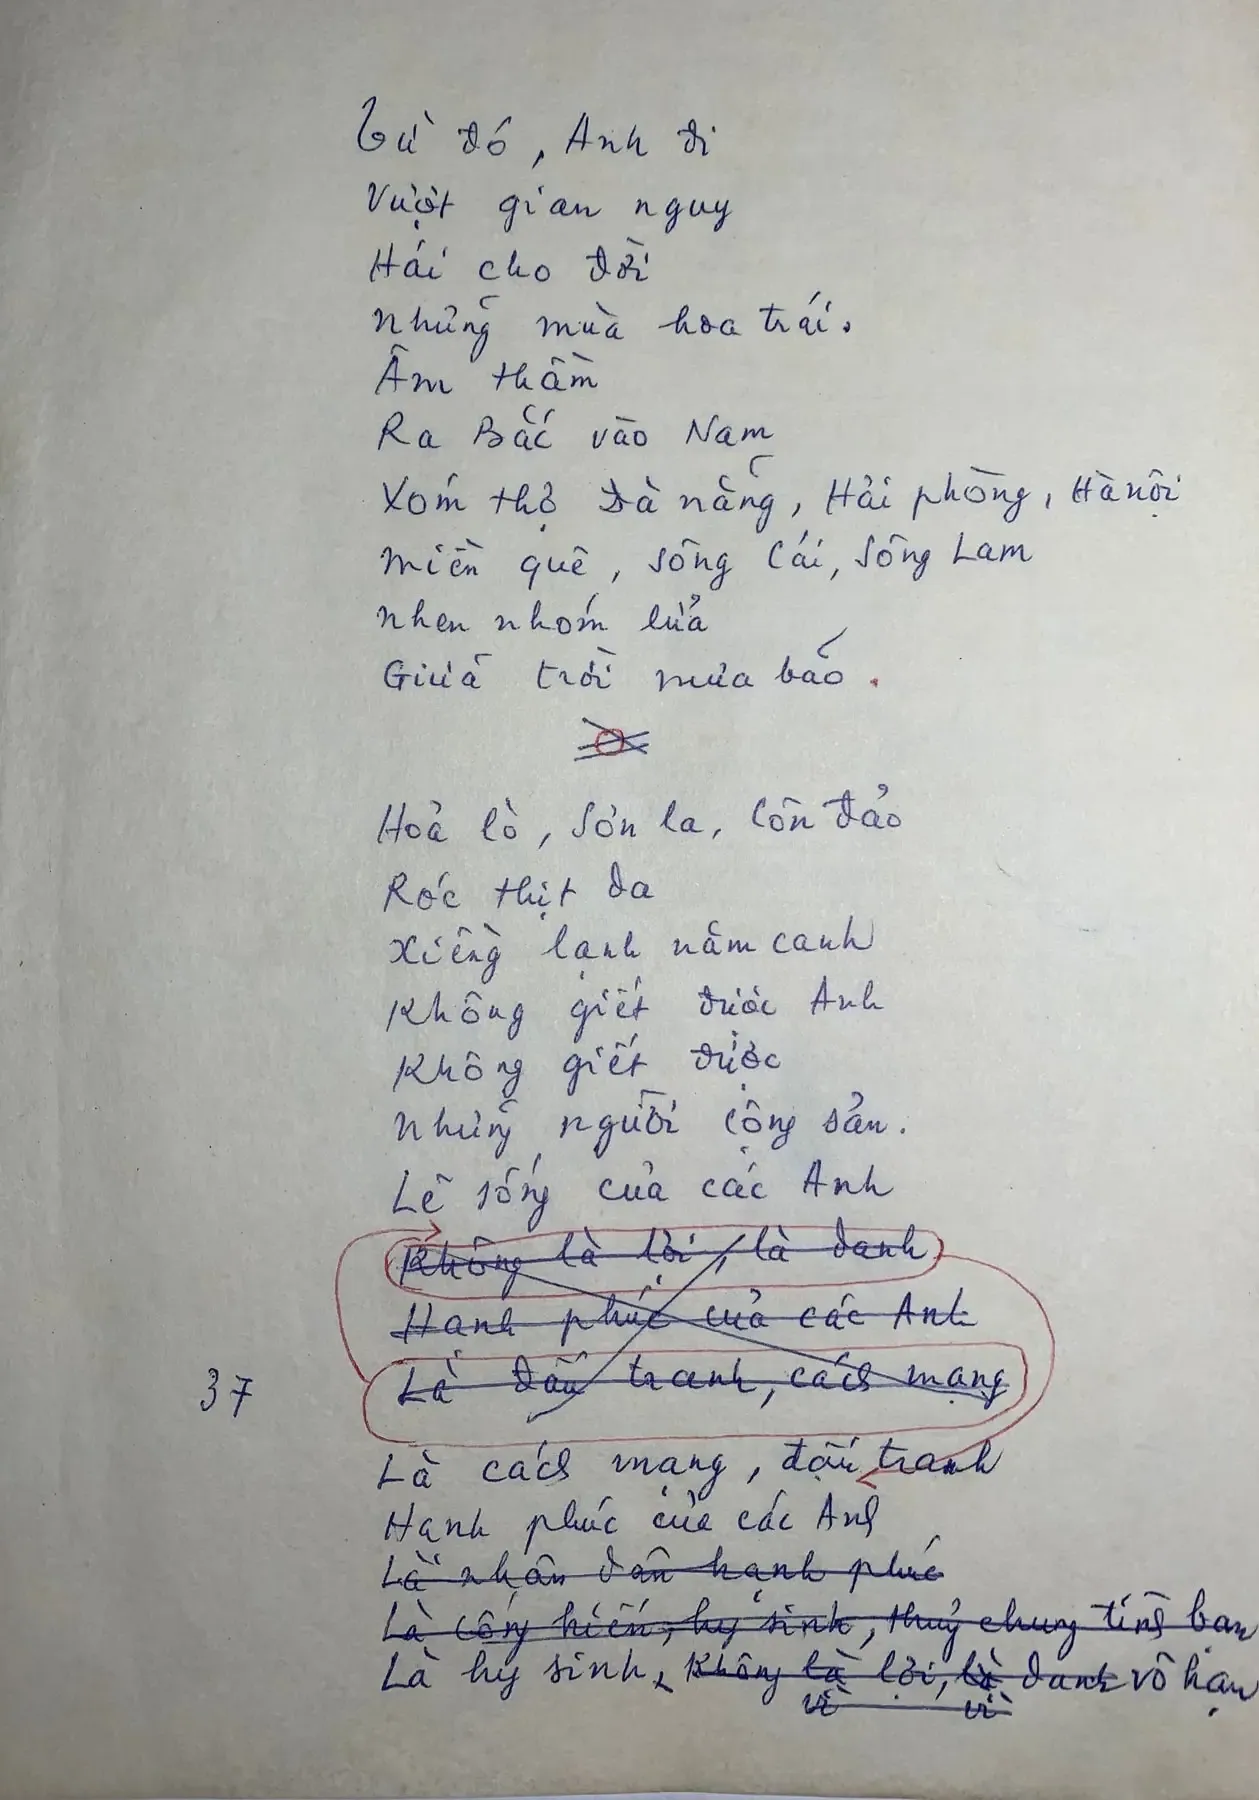 Từ đó, Anh đi
Vượt gian nguy
Hái cho đời
Những mùa hoa trái.
Âm thầm
Ra Bắc vào Nam
Xóm thợ Đà nẵng, Hải phòng, Hà nội
Miền quê, sông Cái, sông Lam
Nhen nhóm lửa
Giữa trời mưa bão.
Hoả lò, Sơn la, Côn đảo
Róc thịt da
Xiềng lạnh năm canh
Không giết được Anh
Không giết được
Những người cộng sản.
Lẽ sống của các Anh
Không là lời, là danh
Hạnh phúc của các Anh
Là đấu tranh, cách mạng
37
Là cách mạng, đấu tranh
Hạnh phúc của các Anh
Là nhân dân hạnh phúc
Là cống hiến, hy sinh, thuỷ chung tình bạn
Là hy sinh, không là lợi, là danh vô hạn
vì vì